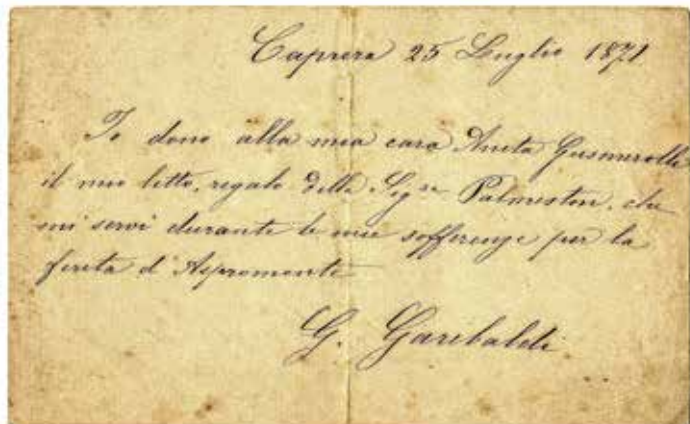 Caprera 25 Luglio 1871
Io dono alla mia cara Anita Gusmaroli
il mio letto, regalo della Sigra Palmeston, che
mi servì durante le mie sofferenze per la
ferita d'Aspromonte
G. Garibaldi